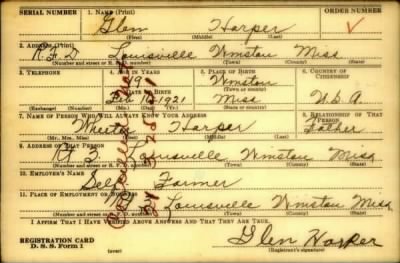 SERIAL NUMBER 1. NAME (Print) ORDER NUMBER
Glen Harper
(First) (Middle) (Last)
2. ADDRESS (Print)
Louisville Winston Miss
(Number and street or R. F. D. number) (Town) (County) (State)
3. TELEPHONE 4. AGE IN YEARS 5. PLACE OF BIRTH 6. COUNTRY OF CITIZENSHIP
Winston
DATE OF BIRTH (Town or county)
1921 Miss U.S.A.
(Exchange) (Number) (Mo.) (Day) (Yr.) (State or country)
7. NAME OF PERSON WHO WILL ALWAYS KNOW YOUR ADDRESS 8. RELATIONSHIP OF THAT PERSON
Harper Father
(Mr., Mrs., Miss) (First) (Middle) (Last)
9. ADDRESS OF THAT PERSON
Louisville Winston Miss
(Number and street or R. F. D. number) (Town) (County) (State)
10. EMPLOYER'S NAME
Self Farmer
11. PLACE OF EMPLOYMENT OR BUSINESS
Louisville Winston Miss
(Number and street or R. F. D. number) (Town) (County) (State)
I AFFIRM THAT I HAVE VERIFIED ABOVE ANSWERS AND THAT THEY ARE TRUE.
REGISTRATION CARD Glen Harper
D. S. S. Form 1 (over) (Registrant's signature)